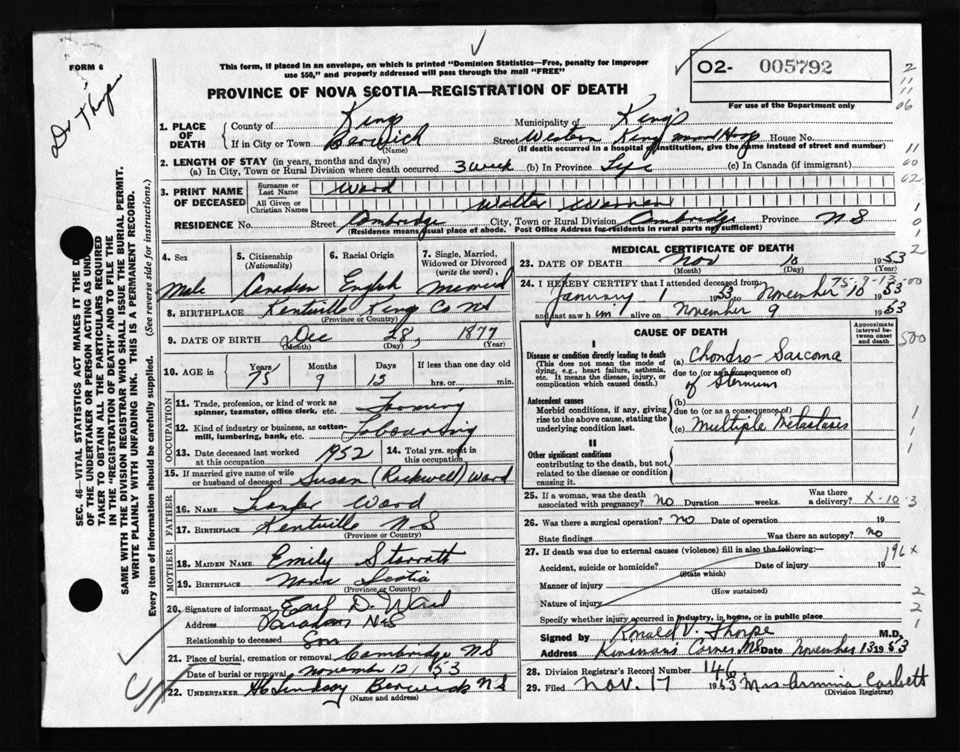 FORM 6
Dr Thorpe
This form, if placed in an envelope, on which is printed "Dominion Statistics—Free, penalty for improper
use $50," and properly addressed will pass through the mail "FREE"
PROVINCE OF NOVA SCOTIA—REGISTRATION OF DEATH
O2- 005792
For use of the Department only
1. PLACE OF DEATH
County of Kings Municipality of Kings
If in City or Town Berwick (Name) Street Western Kings House No.
(If death occurred in a hospital or institution, give the name instead of street and number)
2. LENGTH OF STAY (in years, months and days)
(a) In City, Town or Rural Division where death occurred 3 week (b) In Province Life (c) In Canada (if immigrant)
3. PRINT NAME OF DECEASED
Surname or Last Name Ward
All Given or Christian Names Walter
RESIDENCE No. Street Cambridge City, Town or Rural Division Cambridge Province N S
(Residence means usual place of abode. Post Office Address for residents in rural parts not sufficient)
4. Sex Male
5. Citizenship (Nationality) Canadian
6. Racial Origin English
7. Single, Married, Widowed or Divorced (write the word) Married
8. BIRTHPLACE Kentville Kings Co NS
(Province or Country)
9. DATE OF BIRTH Dec 28, 1877
(Month) (Day) (Year)
10. AGE in Years 75 Months 9 Days 13 If less than one day hrs. or min.
OCCUPATION
11. Trade, profession, or kind of work as spinner, teamster, office clerk, etc. Farming
12. Kind of industry or business, as cotton-mill, lumbering, bank, etc. Labouring
13. Date deceased last worked at this occupation 1952
14. Total yrs. spent in this occupation
15. If married give name of wife or husband of deceased Susan (Rockwell) Ward
FATHER
16. NAME Ward
17. BIRTHPLACE Kentville N S
(Province or Country)
MOTHER
18. MAIDEN NAME Emily Starratt
19. BIRTHPLACE Nova Scotia
(Province or Country)
20. Signature of informant Earl D. Ward
Address Paradise N S
Relationship to deceased Son
21. Place of burial, cremation or removal Cambridge N S
Date of burial or removal November 12, 53
22. UNDERTAKER H C Lindsay Berwick N S
(Name and address)
SEC. 46—VITAL STATISTICS ACT MAKES IT THE D
OF THE UNDERTAKER OR PERSON ACTING AS UND
TAKER TO OBTAIN ALL THE PARTICULARS REQUIRED
IN THE "REGISTRATION OF DEATH" AND TO FILE THE
SAME WITH THE DIVISION REGISTRAR WHO SHALL ISSUE THE BURIAL PERMIT.
WRITE PLAINLY WITH UNFADING INK. THIS IS A PERMANENT RECORD.
Every item of information should be carefully supplied. (See reverse side for instructions.)
MEDICAL CERTIFICATE OF DEATH
23. DATE OF DEATH Nov 10 1953
(Month) (Day) (Year)
24. I HEREBY CERTIFY that I attended deceased from 75-9-13
January 1 1953 to November 10 1953
and last saw him alive on November 9 1953
CAUSE OF DEATH
Approximate interval between onset and death
I
Disease or condition directly leading to death
(This does not mean the mode of dying, e.g., heart failure, asthenia, etc. It means the disease, injury, or complication which caused death.)
(a) Chondro-Sarcoma
due to (or as a consequence of)
of Sternum
Antecedent causes
Morbid conditions, if any, giving rise to the above cause, stating the underlying condition last.
(b)
due to (or as a consequence of)
(c) Multiple Metastasis
II
Other significant conditions
contributing to the death, but not related to the disease or condition causing it.
25. If a woman, was the death associated with pregnancy? no Duration weeks. Was there a delivery? X-10
26. Was there a surgical operation? no Date of operation 19
State findings Was there an autopsy? no
27. If death was due to external causes (violence) fill in also the following:—
196X
Accident, suicide or homicide? (State which) Date of injury 19
Manner of injury (How sustained)
Nature of injury
Specify whether injury occurred in industry, in home, or in public place
Signed by Ronald V. Thorpe M.D.
Address Kinsmans Corner NS Date November 13 1953
28. Division Registrar's Record Number 146
29. Filed Nov. 17 1953 Mrs Corbett
(Division Registrar)